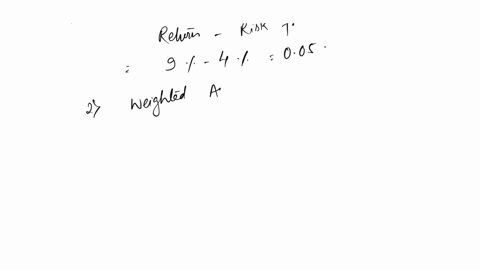 Return - Risk
= 9 % - 4 % = 0.05.
2) Weighted A